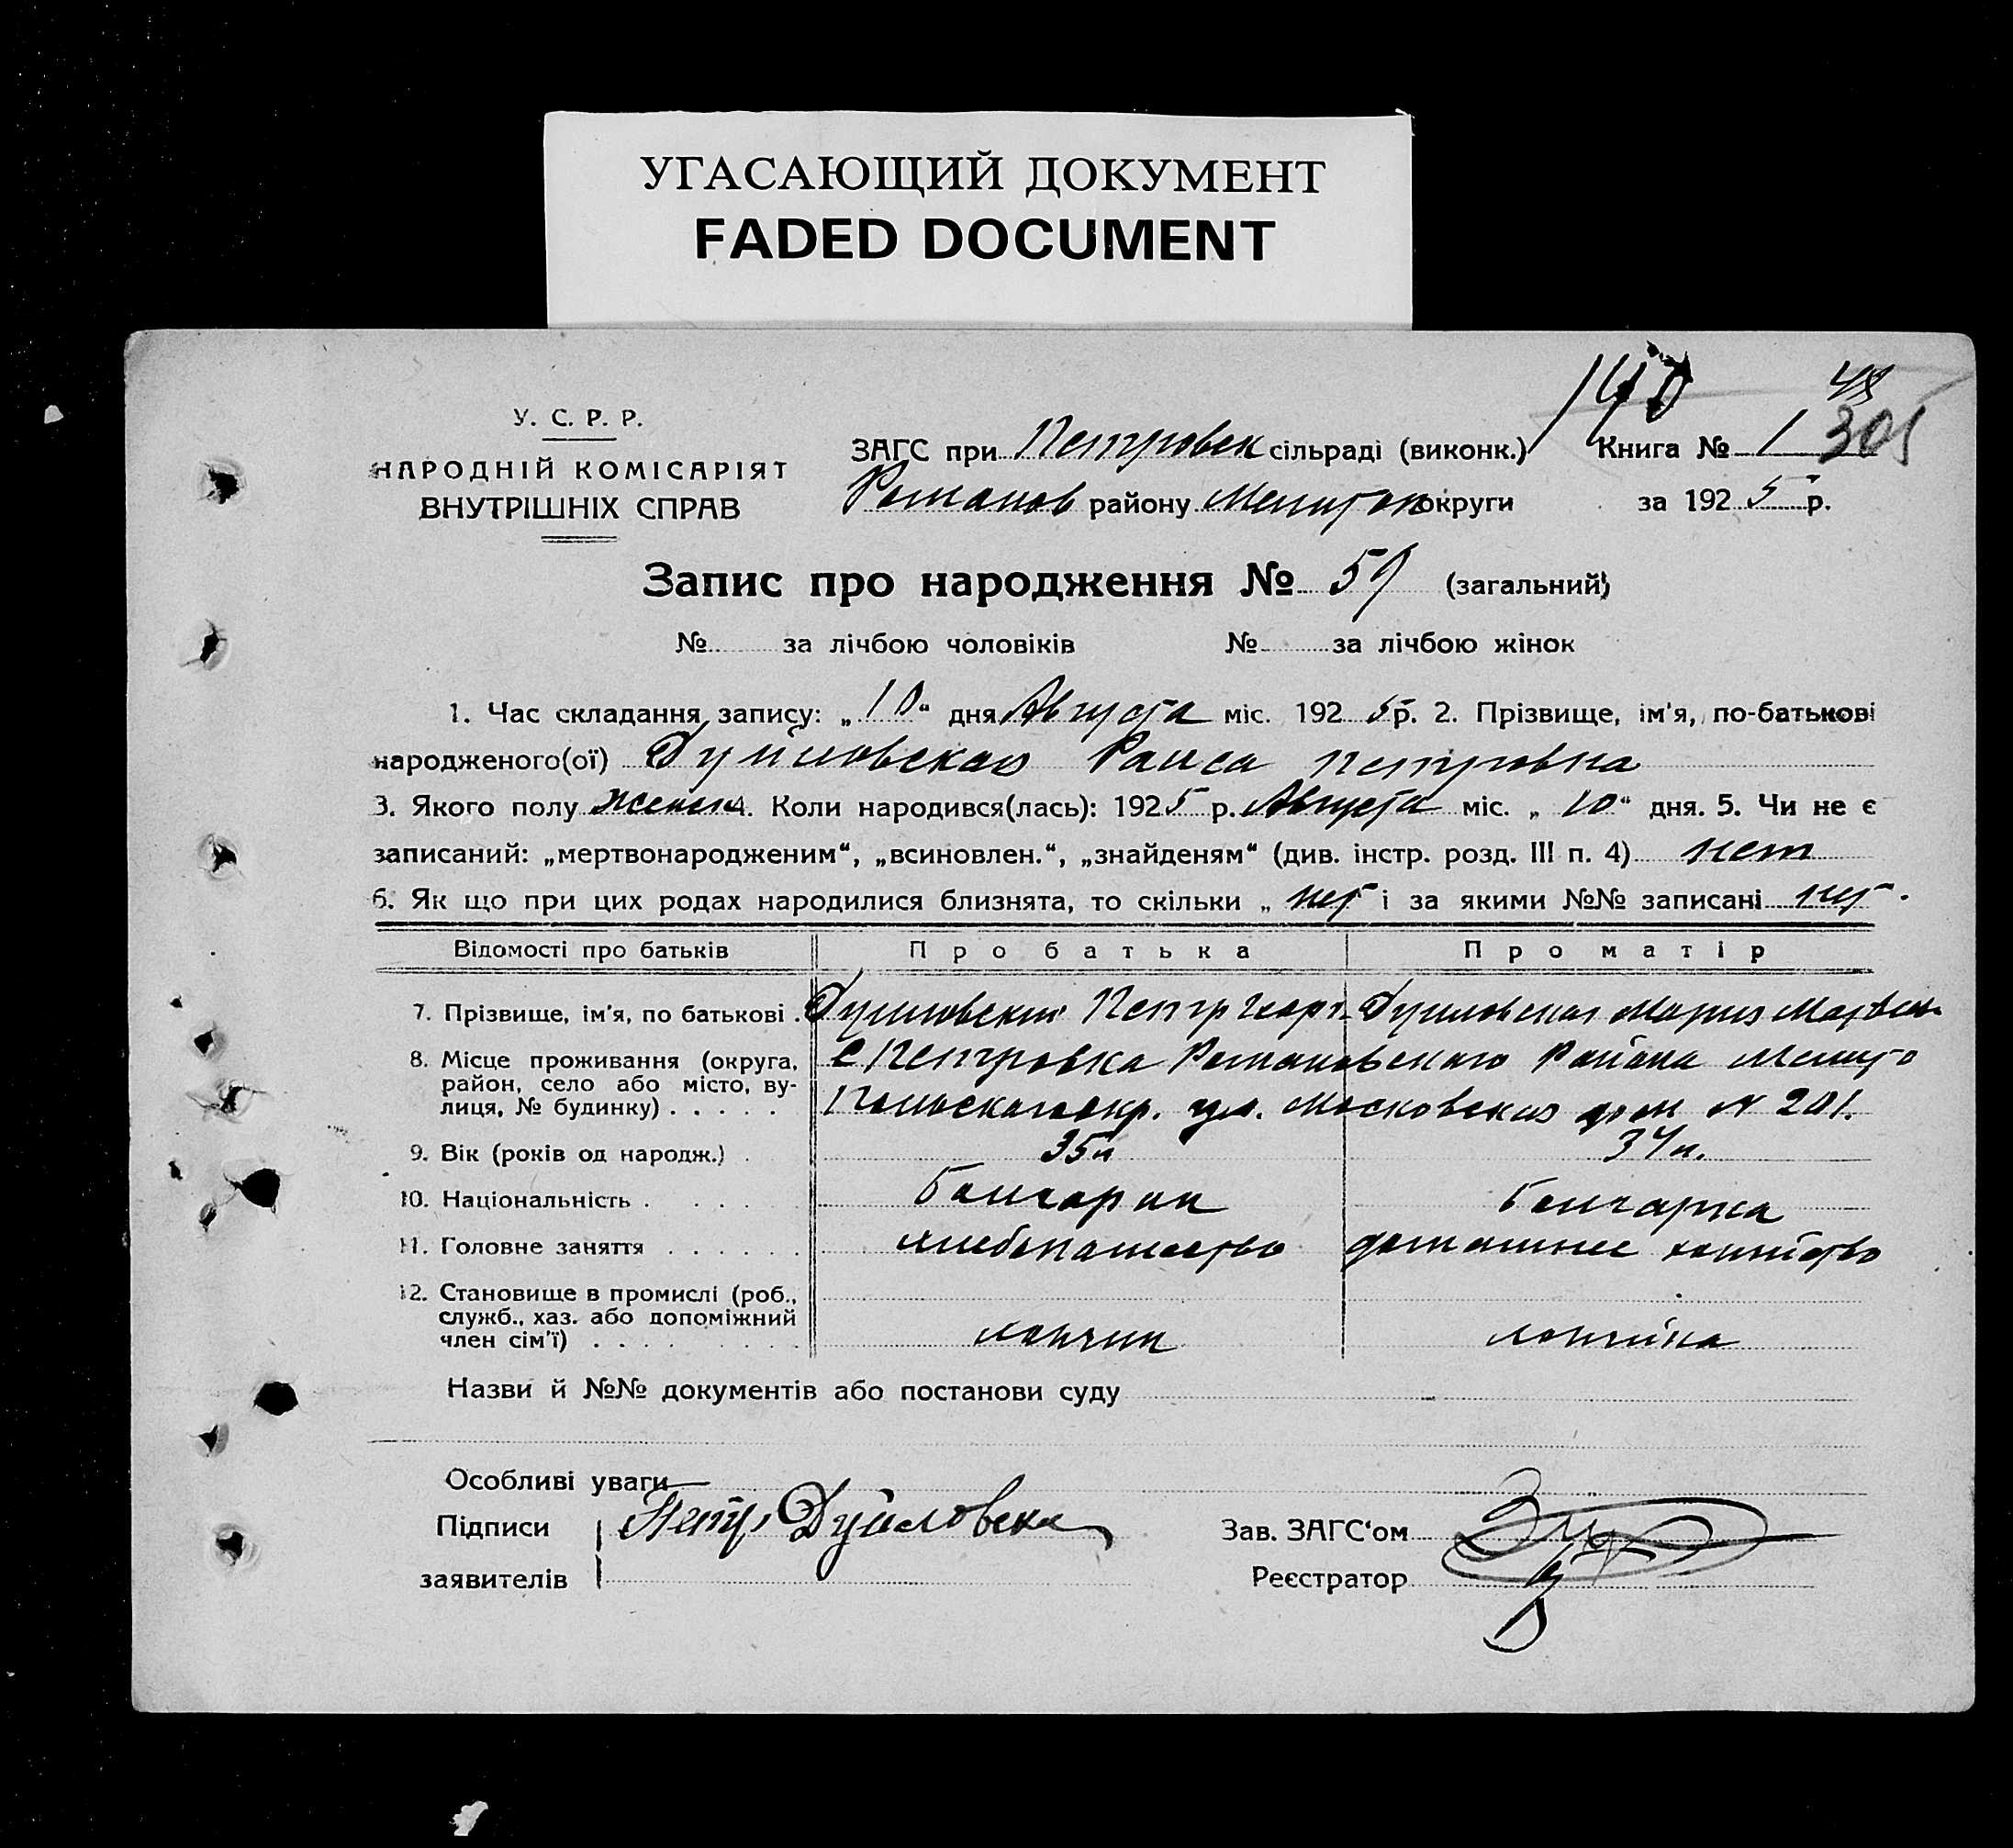 УГАСАЮЩИЙ ДОКУМЕНТ
FADED DOCUMENT
140 48
У. С. Р. Р.
НАРОДНІЙ КОМІСАРІЯТ
ВНУТРІШНІХ СПРАВ
ЗАГС при Петровск сільраді (виконк.) Книга № 1 301
Романов району Мелитоп округи за 1925 р.
Запис про народження № 59 (загальний)
№ за лічбою чоловіків № за лічбою жінок
1. Час складання запису: „10“ дня Августа міс. 1925 р. 2. Прізвище, ім'я, по-батькові
народженого(ої) Дуйловская Раиса Петровна
3. Якого полу женск 4. Коли народився(лась): 1925 р. Августа міс. „10“ дня. 5. Чи не є
записаний: „мертвонародженим“, „всиновлен.“, „знайденям“ (див. інстр. розд. III п. 4) нет
6. Як що при цих родах народилися близнята, то скільки „нет і за якими №№ записані нет.
Відомості про батьків Про батька Про матір
7. Прізвище, ім'я, по батькові . Дуйловский Петр Георг. Дуйловская Мария Матвеев
8. Місце проживання (округа, с Петровка Романовского Района Мелито
район, село або місто, ву-
лиця, № будинку) . . . . . польского окр. ул. Московская дом № 201.
9. Вік (років од народж.) . 35 л 34 л.
10. Національність . . . . Болгарин Болгарка
11. Головне заняття . . . . . . хлебопашество домашнее хозяйство
12. Становище в промислі (роб.,
служб., хаз. або допоміжний
член сім'ї) . . . . . . . . хозяин хозяйка
Назви й №№ документів або постанови суду
Особливі уваги
Підписи Петр Дуйловски
Зав. ЗАГС'ом
заявителів
Реєстратор